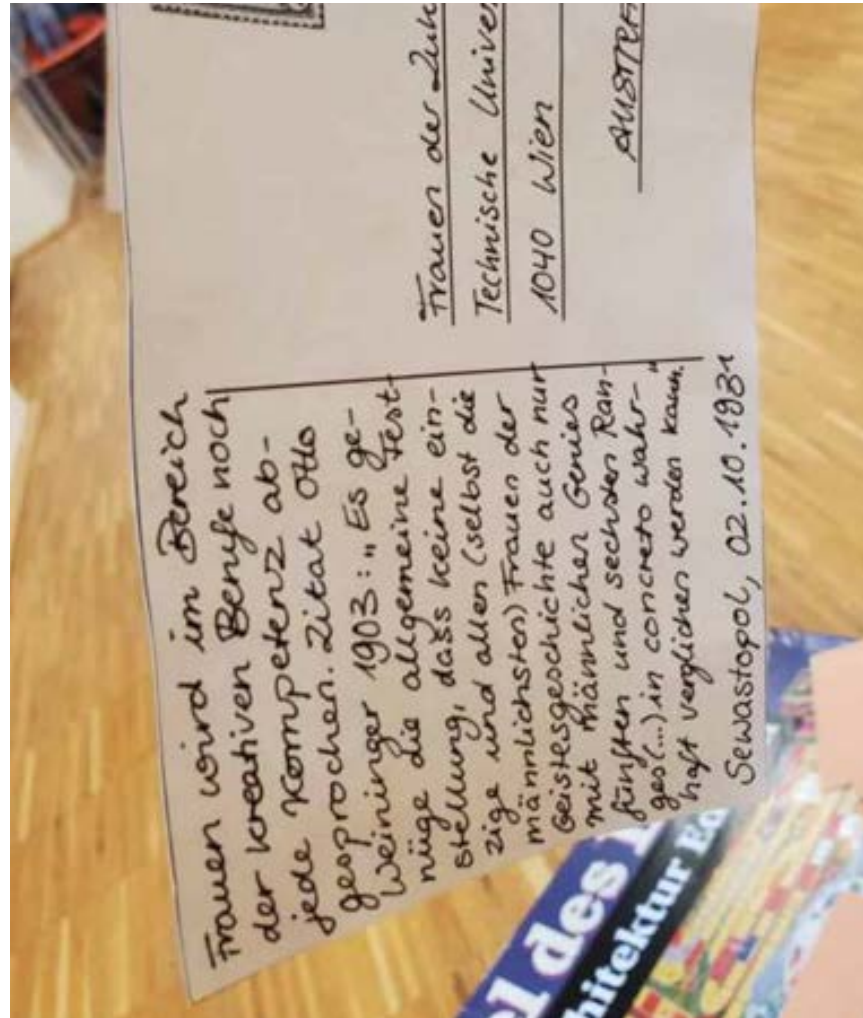 Frauen wird im Bereich
der kreativen Berufe noch
jede Kompetenz ab-
gesprochen. Zitat Otto
Weininger 1903: „Es ge-
nüge die allgemeine Fest-
stellung, dass keine ein-
zige und allen (selbst die
männlichsten) Frauen der
Geistesgeschichte auch nur
mit männlichen Genies
fünften und sechsten Ran-
ges (...) in concreto wahr-
haft verglichen werden kann."
Sewastopol, 02.10.1931
Frauen der Zuk
Technische Univer
1040 Wien
AUSTRI
el des
hitektur Ed